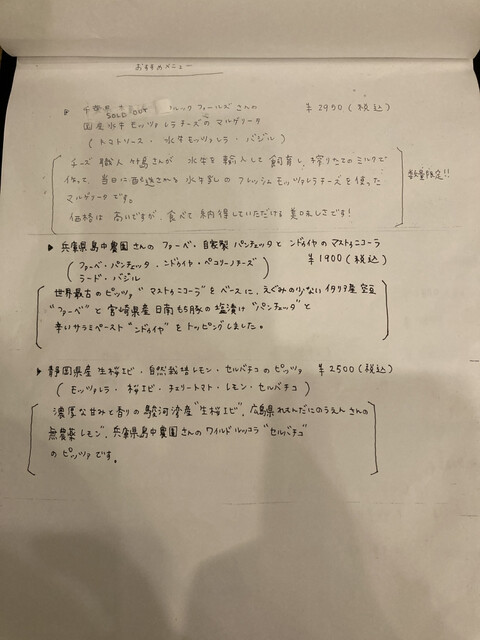 おすすめメニュー
▶ 千葉県 ルックフィールズさんの ¥2900(税込)
SOLD OUT
国産水牛モッツァレラチーズの マルゲリータ
(トマトソース・水牛モッツァレラ・バジル)
チーズ職人竹島さんが 水牛を輸入して飼育し、搾りたてのミルクで
作って、当日に配送される 水牛乳の フレッシュモッツァレラチーズを使った 数量限定!!
マルゲリータです。
価格は高いですが、食べて納得していただける美味しさです!
▶ 兵庫県島中農園さんの ファーベ・自家製パンチェッタと ンドゥイヤのマストゥニコーラ
(ファーベ・パンチェッタ・ンドゥイヤ・ペコリーノチーズ ¥1900(税込)
ラード・バジル)
世界最古のピッツァ"マストゥニコーラ"をベースに、えぐみの少ないイタリア産空豆
"ファーベ"と宮崎県産日南もち豚の塩漬け"パンチェッタ"と
辛いサラミペースト"ンドゥイヤ"をトッピングしました。
▶ 静岡県産生桜エビ・自然栽培レモン・セルバチコのピッツァ ¥2500(税込)
(モッツァレラ・桜エビ・チェリートマト・レモン・セルバチコ)
濃厚な甘みと香りの駿河湾産"生桜エビ"、広島県れもんだにのうえんさんの
無農薬レモン、兵庫県島中農園さんのワイルドルッコラ"セルバチコ"
のピッツァです。